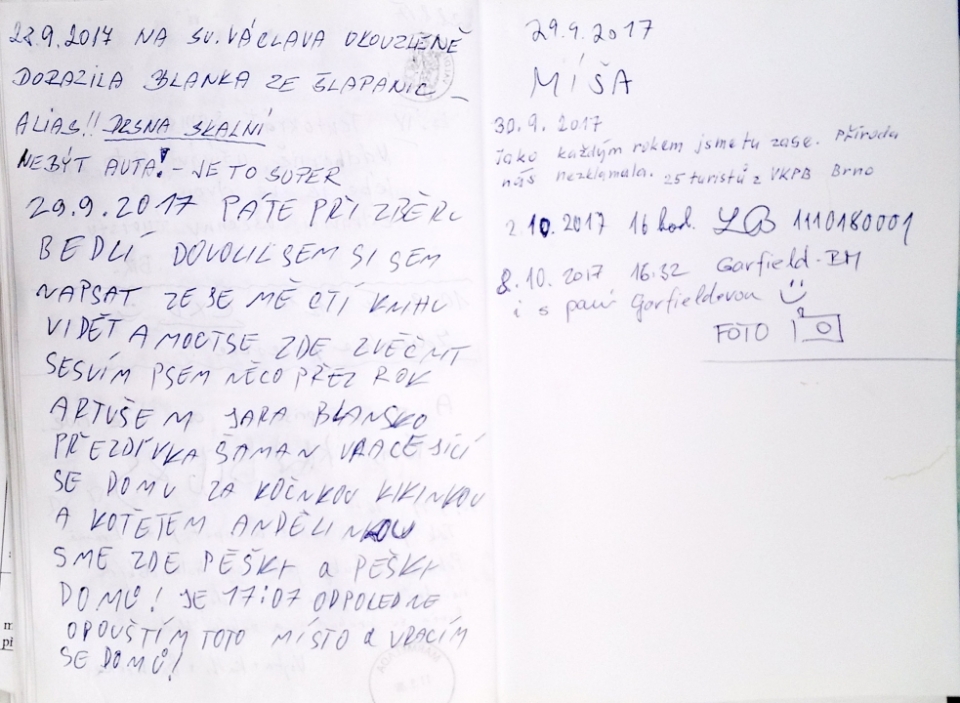 28.9.2017 NA SV. VÁCLAVA OKOUZLENĚ
DORAZILA BLANKA ZE ŠLAPANIC –
ALIAS!! DRSNA SKALNÍ
NEBÝT AUTA! – JE TO SUPER
29.9.2017 PÁTE PŘI ZBĚRU
BEDLÍ DOVOLIL SEM SI SEM
NAPSAT ZE SE MĚ CTÍ KNIHU
VIDĚT A MOCTSE ZDE ZVĚČNIT
SESVÍM PSEM NĚCO PŘEZ ROK
ARTUŠEM JARA BLANSKO
PŘEZDÍVKA ŠAMAN VRACEJÍCÍ
SE DOMU ZA KOČINKOU KIKINKOU
A KOTĚTEM ANDĚLINKOU
SME ZDE PĚŠKY a PĚŠKY
DOMŮ! JE 17:07 ODPOLEDNE
OPOUŠTÍM TOTO MÍSTO a VRACÍM
SE DOMŮ!
29.9.2017
MÍŠA
30.9.2017
Jako každým rokem jsme tu zase. Příroda
nás nezklamala. 25 turistů z VKPB Brno
2.10.2017 16 hod. 1110180001
8.10.2017 16:32 Garfield-BM
i s paní Garfieldovou
FOTO